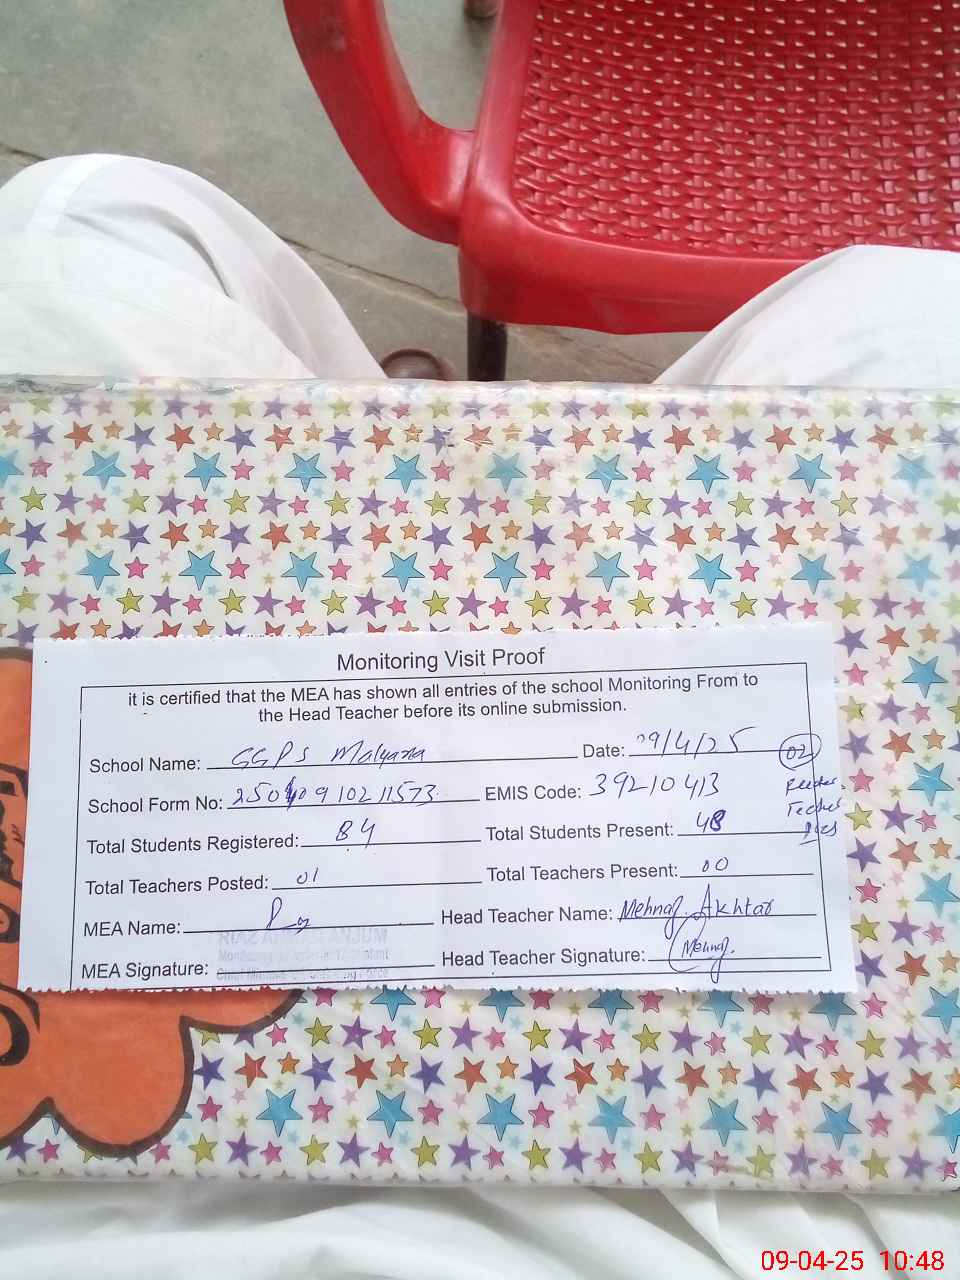 Monitoring Visit Proof
it is certified that the MEA has shown all entries of the school Monitoring From to
the Head Teacher before its online submission.
School Name: GGPS Malyana Date: 09/4/25 02
School Form No: 25040910211573 EMIS Code: 39210413
Total Students Registered: 84 Total Students Present: 48
Teacher
Total Teachers Posted: 01 Total Teachers Present: 00
MEA Name: Head Teacher Name: Mehnaz Akhtar
MEA Signature: Head Teacher Signature: Mehnaz
09-04-25 10:48